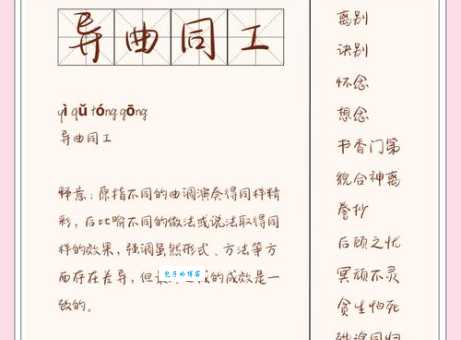 异曲同工
yì qǔ tóng gōng
异曲同工
释意：原指不同的曲调演奏得同样精
彩，后比喻不同的做法或说法取得同
样的效果，强调虽然形式、方法等方
面存在差异，但 的成效是一
致的。
离别
诀别
怀念
想念
书香门第
貌合神离
誊抄
后顾之忧
冥顽不灵
贪生怕死
殊途同归